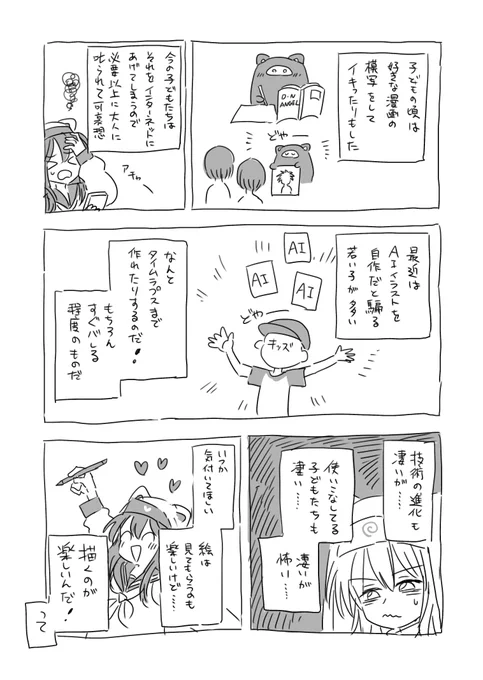 子どもの頃は
好きな漫画の
模写をして
イキったりもした
D・N
ANGEL
どやー
今の子どもたちは
それをインターネットに
あげてしまうので
必要以上に大人に
叱られて可哀想
アチャー
最近は
AIイラストを
自作だと騙る
若い子が多い
AI
AI
AI
どやー
キッズ
なんと
タイムラプスまで
作れたりするのだ!
もちろん
すぐバレる
程度のものだ
技術の進化も
凄いが……
使いこなしてる
子どもたちも
凄い…
凄いが
怖い…
いつか
気付いてほしい
絵は
見てもらうのも
楽しいけど……
描くのが
楽しいんだ!
って